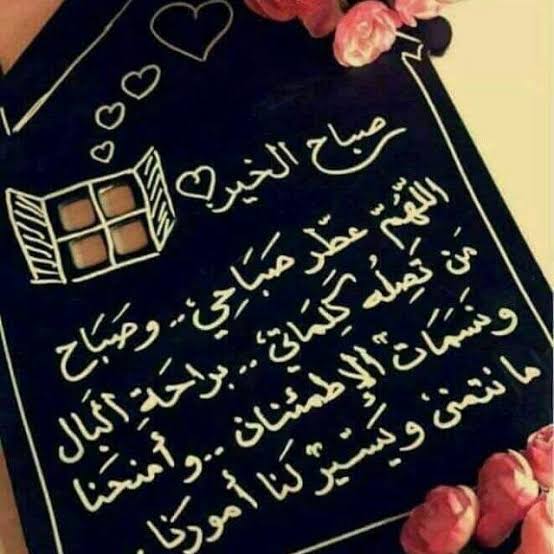 صباح الخير
اللّهمّ عطّر صَبَاحِي .. وصَبَاح
مَن تَصِلُه كَلِمَاتي .. براحَةِ البَال
ونَسَمَات الإطمئنان .. وأمنحنَا
ما نتمنى ويَسّر لَنا أمورَنا